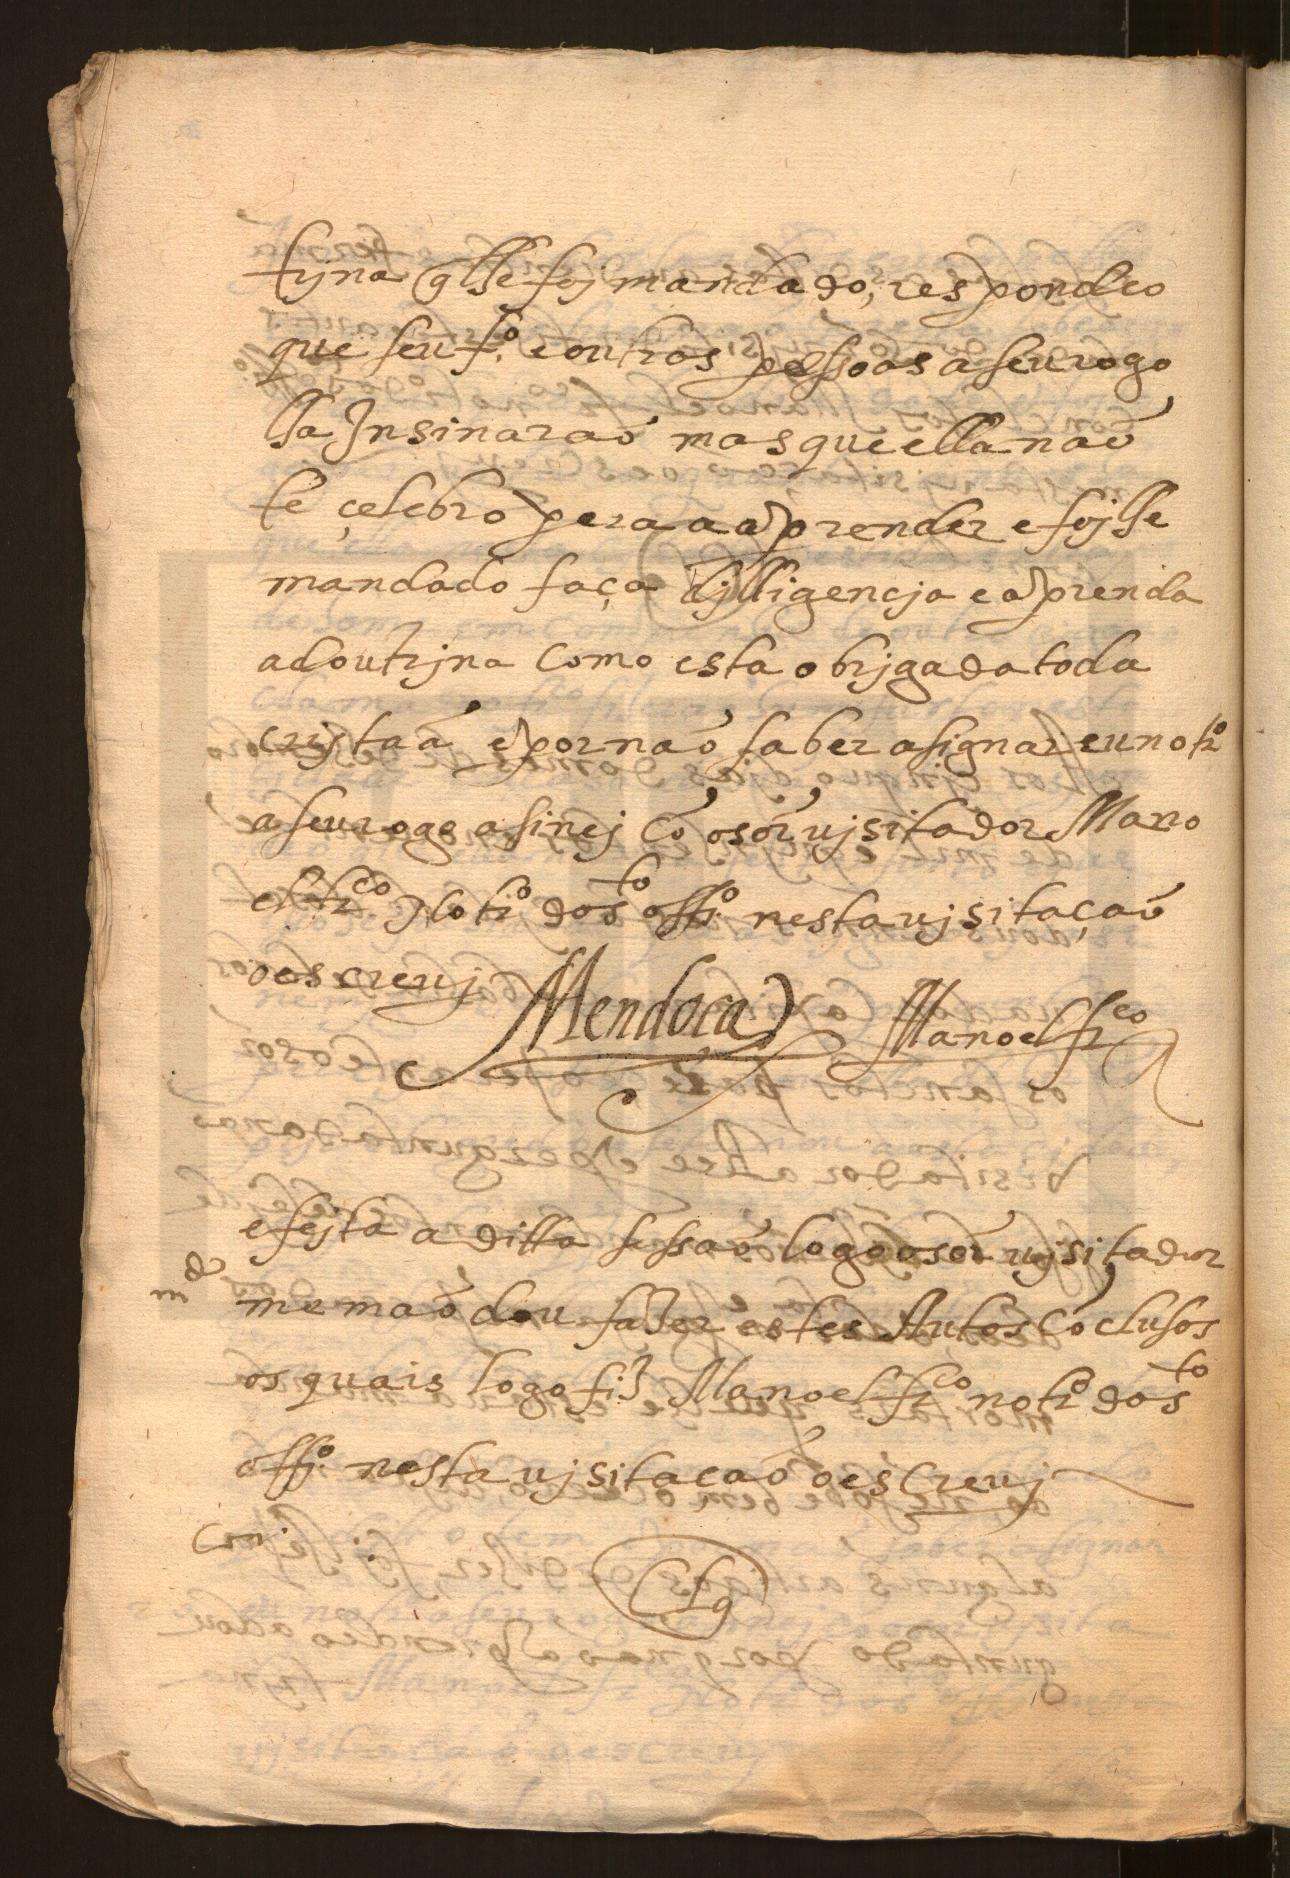 trjna q̃ lhe foj mandado, respondeo
que seu f.º e outras pessoas a seu rogo
lha Jnsinarão mas que ella não
tẽ çelebro pera a aprender e foj lhe
mandado faça djlligencja e aprenda
a doutrjna como esta obrjgada toda
crjstaã e por não saber asignar eu not.ro
a seu rogo asinej cõ o sõr vjsitador Mano
el fr.co Not.ro do s.to off.º nesta vjsitação
o escrevj Mendoca Manoel fr.co
e fejta a ditta sessão logo o sõr vjsitador
m.d me mãodou fazer estes Autos cõclusos
os quais logo fiz Manoel fr.co not.ro do s.to
off.º nesta vjsitação o escrevj